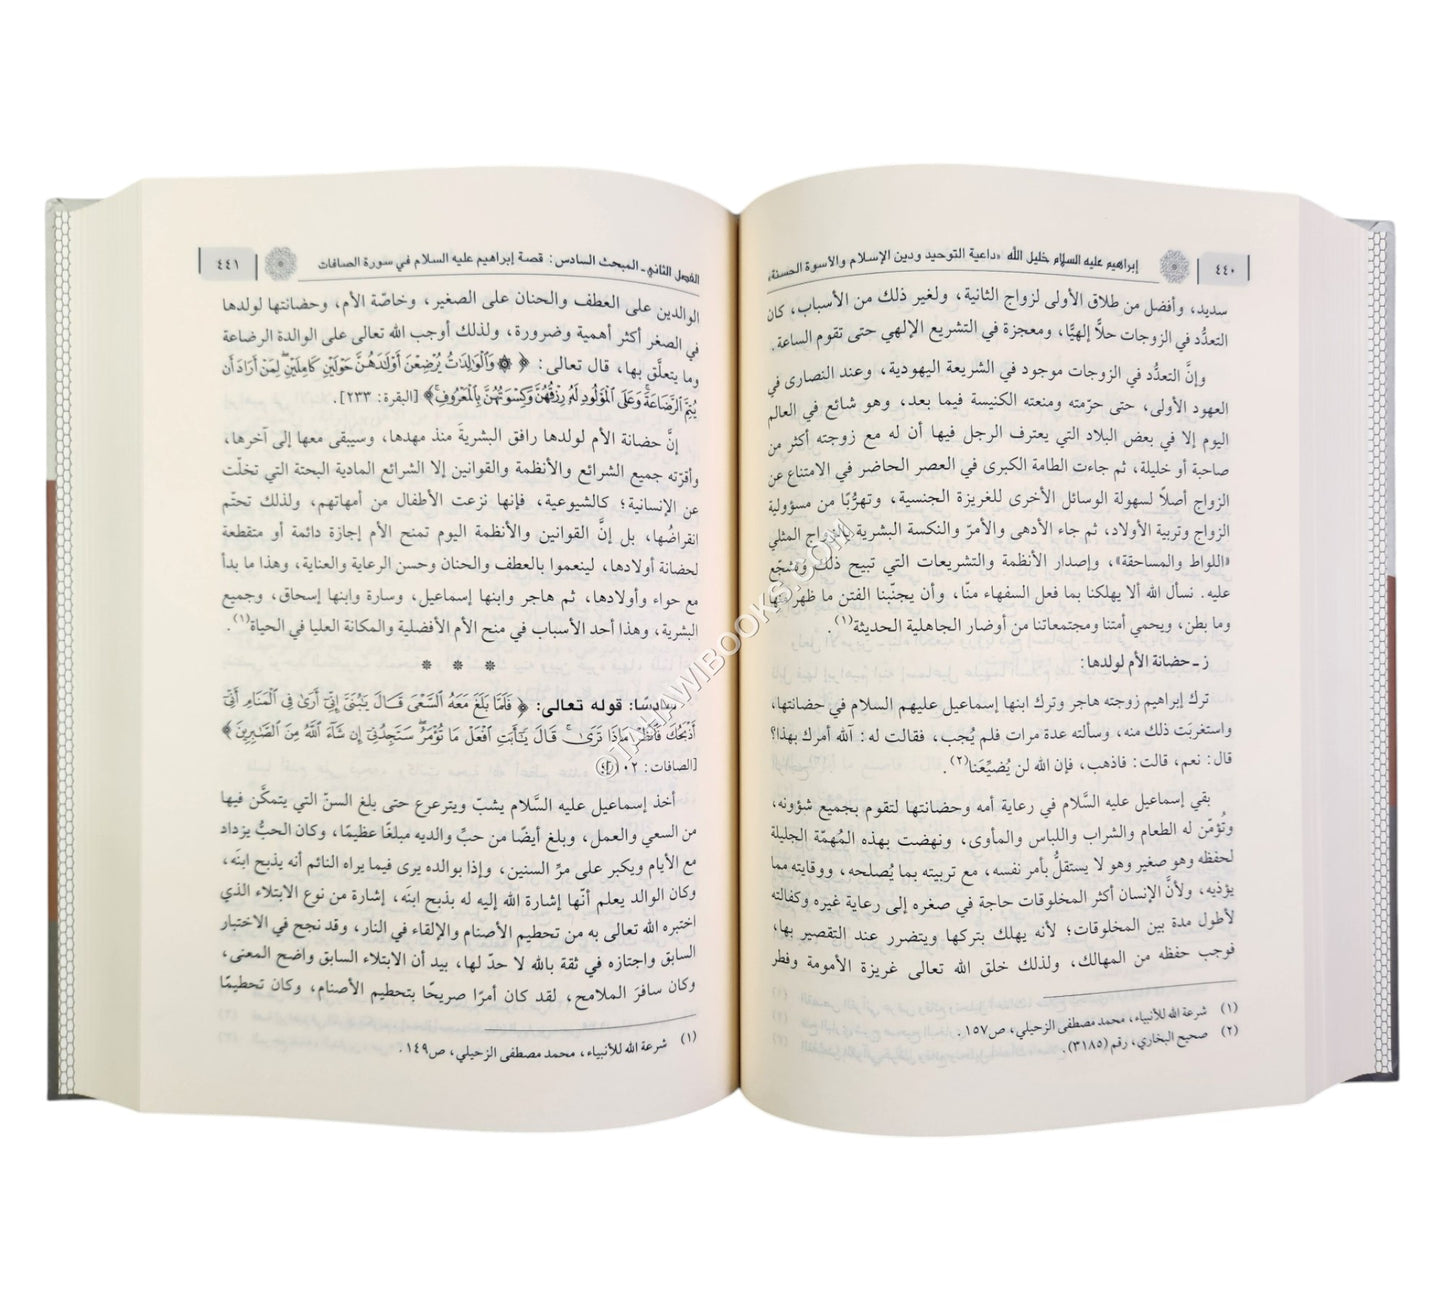 ٤٤٠
إبراهيم عليه السلام خليل الله «داعية التوحيد ودين الإسلام والأسوة الحسنة»
سديد، وأفضل من طلاق الأولى لزواج الثانية، ولغير ذلك من الأسباب، كان
التعدُّد في الزوجات حلاًّ إلهيًّا، ومعجزة في التشريع الإلهي حتى تقوم الساعة.
وإنَّ التعدُّد في الزوجات موجود في الشريعة اليهودية، وعند النصارى في
العهود الأولى، حتى حرّمته ومنعته الكنيسة فيما بعد، وهو شائع في العالم
اليوم إلا في بعض البلاد التي يعترف الرجل فيها أن له مع زوجته أكثر من
صاحبة أو خليلة، ثم جاءت الطامة الكبرى في العصر الحاضر في الامتناع عن
الزواج أصلاً لسهولة الوسائل الأخرى للغريزة الجنسية، وتهرُّبًا من مسؤولية
الزواج وتربية الأولاد، ثم جاء الأدهى والأمرّ والنكسة البشرية بالزواج المثلي
«اللواط والمساحقة»، وإصدار الأنظمة والتشريعات التي تبيح ذلك وتشجّع
عليه. نسأل الله ألا يهلكنا بما فعل السفهاء منّا، وأن يجنّبنا الفتن ما ظهر منها
وما بطن، ويحمي أمتنا ومجتمعاتنا من أوضار الجاهلية الحديثة(١).
ز ـ حضانة الأم لولدها:
ترك إبراهيم زوجته هاجر وترك ابنها إسماعيل عليهم السلام في حضانتها،
واستغربَت ذلك منه، وسألته عدة مرات فلم يُجب، فقالت له: آلله أمرك بهذا؟
قال: نعم، قالت: فاذهب، فإن الله لن يُضيِّعَنا(٢).
بقي إسماعيل عليه السَّلام في رعاية أمه وحضانتها لتقوم بجميع شؤونه،
وتُؤمّن له الطعام والشراب واللباس والمأوى، ونهضت بهذه المُهمّة الجليلة
لحفظه وهو صغير وهو لا يستقلُّ بأمر نفسه، مع تربيته بما يُصلحه، ووقايته مما
يؤذيه، ولأنَّ الإنسان أكثر المخلوقات حاجة في صغره إلى رعاية غيره وكفالته
لأطول مدة بين المخلوقات؛ لأنه يهلك بتركها ويتضرر عند التقصير بها،
فوجب حفظه من المهالك، ولذلك خلق الله تعالى غريزة الأمومة وفطر
(١) شرعة الله للأنبياء، محمد مصطفى الزحيلي، ص١٥٧.
(٢) صحيح البخاري، رقم (٣١٨٥).
الفصل الثاني ـ المبحث السادس: قصة إبراهيم عليه السلام في سورة الصافات
٤٤١
الوالدين على العطف والحنان على الصغير، وخاصّة الأم، وحضانتها لولدها
في الصغر أكثر أهمية وضرورة، ولذلك أوجب الله تعالى على الوالدة الرضاعة
وما يتعلَّق بها، قال تعالى: ﴿ ۞ وَٱلْوَٰلِدَٰتُ يُرْضِعْنَ أَوْلَٰدَهُنَّ حَوْلَيْنِ كَامِلَيْنِ ۖ لِمَنْ أَرَادَ أَن
يُتِمَّ ٱلرَّضَاعَةَ ۚ وَعَلَى ٱلْمَوْلُودِ لَهُۥ رِزْقُهُنَّ وَكِسْوَتُهُنَّ بِٱلْمَعْرُوفِ ۚ﴾ [البقرة: ٢٣٣].
إنَّ حضانة الأم لولدها رافق البشريةَ منذ مهدها، وسيبقى معها إلى آخرها،
وأقرّته جميع الشرائع والأنظمة والقوانين إلا الشرائع المادية البحتة التي تخلّت
عن الإنسانية؛ كالشيوعية، فإنها نزعت الأطفال من أمهاتهم، ولذلك تحتّم
انقراضُها، بل إنَّ القوانين والأنظمة اليوم تمنح الأم إجازة دائمة أو متقطعة
لحضانة أولادها، لينعموا بالعطف والحنان وحسن الرعاية والعناية، وهذا ما بدأ
مع حواء وأولادها، ثم هاجر وابنها إسماعيل، وسارة وابنها إسحاق، وجميع
البشرية، وهذا أحد الأسباب في منح الأم الأفضلية والمكانة العليا في الحياة(١).
* * *
سادسًا: قوله تعالى: ﴿ فَلَمَّا بَلَغَ مَعَهُ ٱلسَّعْىَ قَالَ يَٰبُنَىَّ إِنِّىٓ أَرَىٰ فِى ٱلْمَنَامِ أَنِّىٓ
أَذْبَحُكَ فَٱنظُرْ مَاذَا تَرَىٰ ۚ قَالَ يَٰٓأَبَتِ ٱفْعَلْ مَا تُؤْمَرُ ۖ سَتَجِدُنِىٓ إِن شَآءَ ٱللَّهُ مِنَ ٱلصَّٰبِرِينَ ﴾
[الصافات: ١٠٢]
أخذ إسماعيل عليه السَّلام يشبّ ويترعرع حتى بلغ السنّ التي يتمكَّن فيها
من السعي والعمل، وبلغ أيضًا من حبِّ والديه مبلغًا عظيمًا، وكان الحبُّ يزداد
مع الأيام ويكبر على مرِّ السنين، وإذا بوالده يرى فيما يراه النائم أنه يذبح ابنَه،
وكان الوالد يعلم أنّها إشارة الله إليه له بذبح ابنَه، إشارة من نوع الابتلاء الذي
اختبره الله تعالى به من تحطيم الأصنام والإلقاء في النار، وقد نجح في الاختبار
السابق واجتازه في ثقة بالله لا حدّ لها، بيد أن الابتلاء السابق واضح المعنى،
وكان سافرَ الملامح، لقد كان أمرًا صريحًا بتحطيم الأصنام، وكان تحطيمًا
(١) شرعة الله للأنبياء، محمد مصطفى الزحيلي، ص١٤٩.